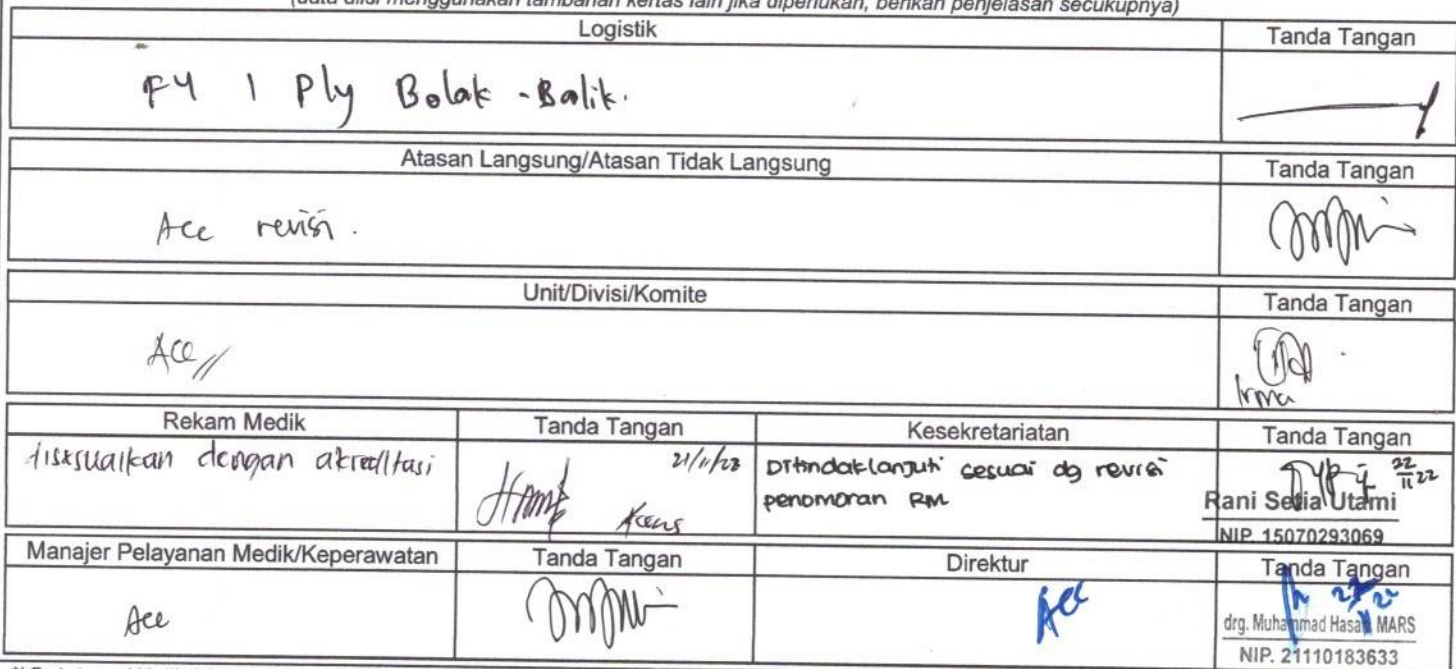 (data diisi menggunakan tambahan kertas lain jika diperlukan, berikan penjelasan secukupnya)
Logistik Tanda Tangan
F4 1 Ply Bolak-Balik.
Atasan Langsung/Atasan Tidak Langsung Tanda Tangan
Acc revisi.
Unit/Divisi/Komite Tanda Tangan
Acc
Irma
Rekam Medik Tanda Tangan Kesekretariatan Tanda Tangan
disesuaikan dengan akreditasi
Ditindaklanjuti sesuai dg revisi
penomoran RM
22/11 22
Rani Setia Utami
NIP. 15070293069
Manajer Pelayanan Medik/Keperawatan Tanda Tangan Direktur Tanda Tangan
Acc
Acc
drg. Muhammad Hasan MARS
NIP. 21110183633